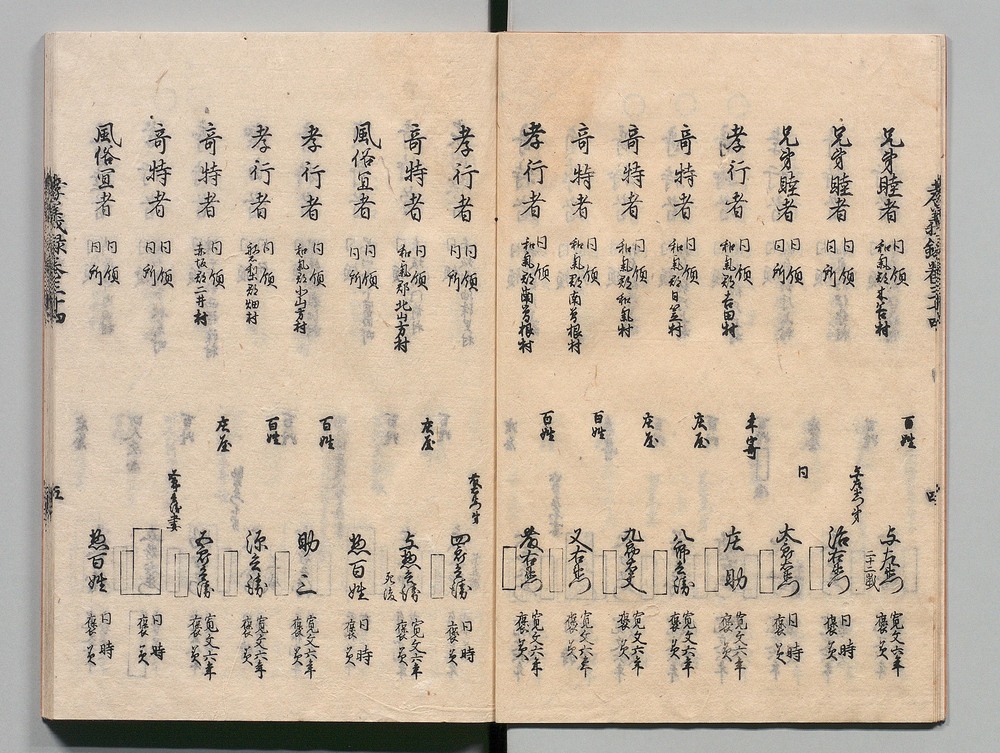 孝義録巻三十四
兄弟睦者 同領 和気郡木谷村 百姓 与左衛門 二十二歳 寛文六年 褒美
兄弟睦者 同領 同所 与左衛門弟 治右衛門 同時 褒美
兄弟睦者 同領 同所 同 太郎左衛門 同時 褒美
孝行者 同領 和気郡吉田村 年寄 庄助 寛文六年 褒美
奇特者 同領 和気郡日笠村 庄屋 八郎兵衛 寛文六年 褒美
奇特者 同領 和気郡和気村 庄屋 九郎右衛門 寛文六年 褒美
奇特者 同領 和気郡南曽根村 百姓 又右衛門 寛文六年 褒美
孝行者 同領 和気郡南曽根村 百姓 右衛門 寛文六年 褒美
孝行者 同領 同所 弟 四郎兵衛 同時 褒美
奇特者 同領 和気郡北山方村 庄屋 与惣兵衛 死後 寛文六年 褒美
風俗宜者 同領 同所 惣百姓 同時 褒美
孝行者 同領 和気郡小山方村 百姓 助三 寛文六年 褒美
孝行者 同領 郡畑村 百姓 源兵衛 寛文六年 褒美
奇特者 同領 赤坂郡二井村 庄屋 五郎兵衛 寛文六年 褒美
奇特者 同領 同所 妻 同時 褒美
風俗宜者 同領 同所 惣百姓 同時 褒美
孝義録巻三十四